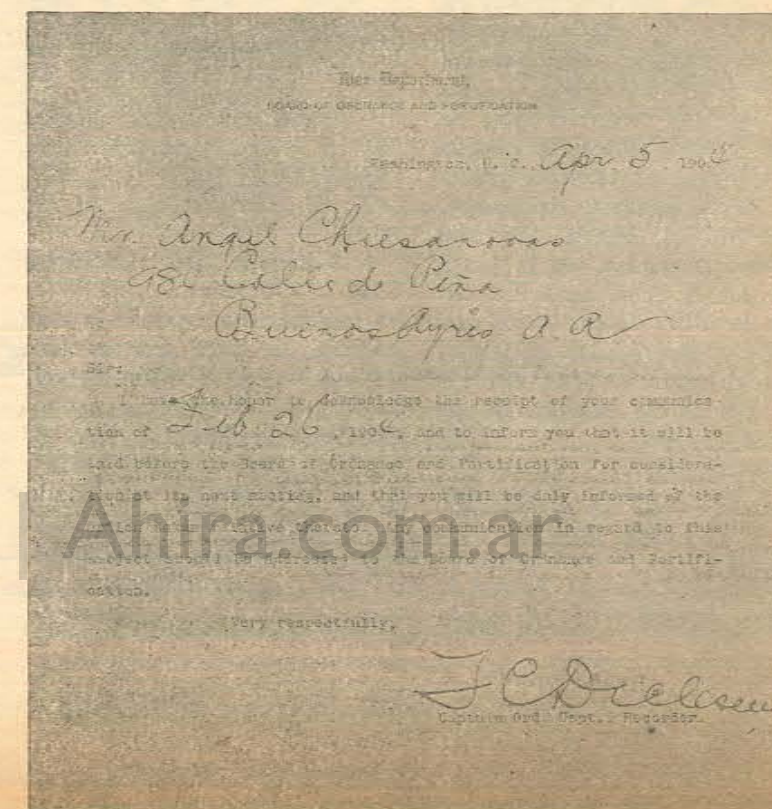 War Department,
BOARD OF ORDNANCE AND FORTIFICATION
Washington, D. C., Apr. 5, 1904
Mr. Angel
980 Calle de Peña
Buenos Ayres A. R
Sir:
I have the honor to acknowledge the receipt of your communica-
tion of Feb. 26, 1904, and to inform you that it will be
laid before the Board of Ordnance and Fortification for considera-
tion at its next meeting, and that you will be duly informed of the
action thereto. Any communication in regard to this
subject should be addressed to the Board of Ordnance and Fortifi-
cation.
Ahira.com.ar
Very respectfully,
Captain Ord. Dept., Recorder.